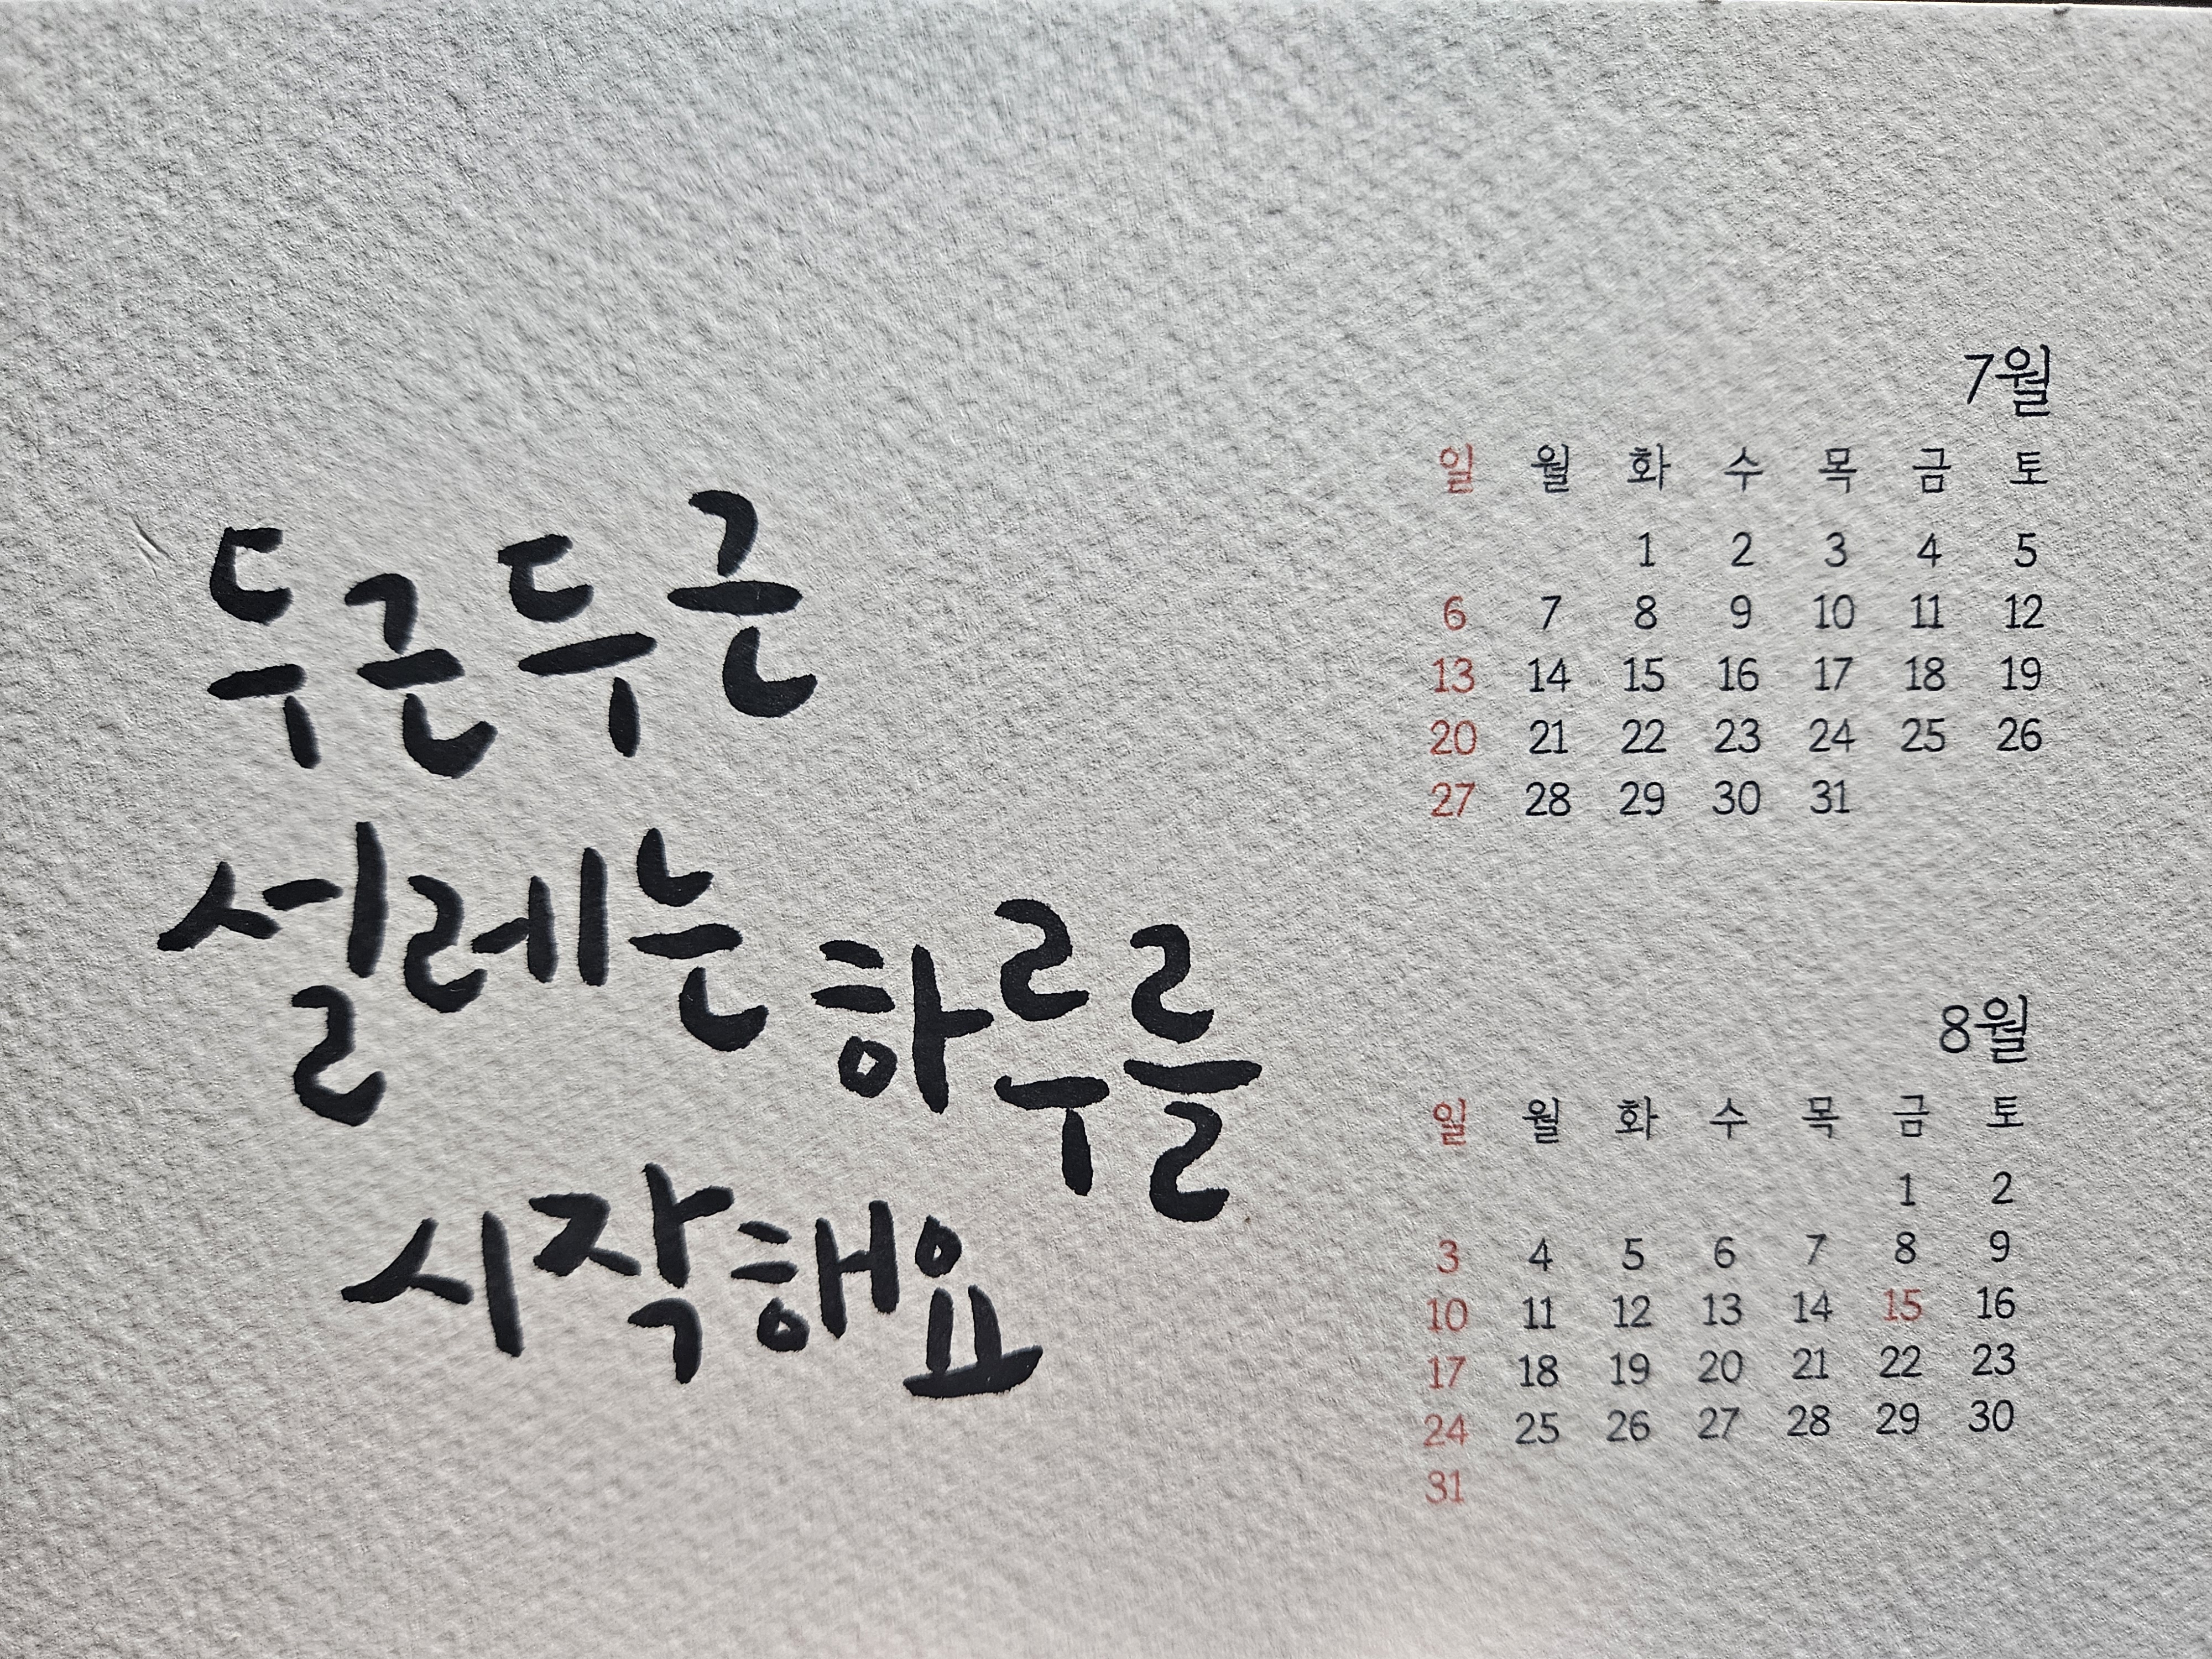 두근두근
설레는 하루를
시작해요
7월
일 월 화 수 목 금 토
1 2 3 4 5
6 7 8 9 10 11 12
13 14 15 16 17 18 19
20 21 22 23 24 25 26
27 28 29 30 31
8월
일 월 화 수 목 금 토
1 2
3 4 5 6 7 8 9
10 11 12 13 14 15 16
17 18 19 20 21 22 23
24 25 26 27 28 29 30
31